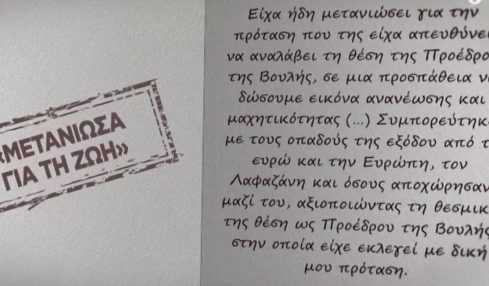 «ΜΕΤΑΝΙΩΣΑ
ΓΙΑ ΤΗ ΖΩΗ»
Είχα ήδη μετανιώσει για την
πρόταση που της είχα απευθύνει
να αναλάβει τη θέση της Προέδρο
της Βουλής, σε μια προσπάθεια να
δώσουμε εικόνα ανανέωσης και
μαχητικότητας (...) Συμπορεύτηκ
με τους οπαδούς της εξόδου από τ
ευρώ και την Ευρώπη, τον
Λαφαζάνη και όσους αποχώρησαν
μαζί του, αξιοποιώντας τη θεσμικ
της θέση ως Προέδρου της Βουλής
στην οποία είχε εκλεγεί με δική
μου πρόταση.